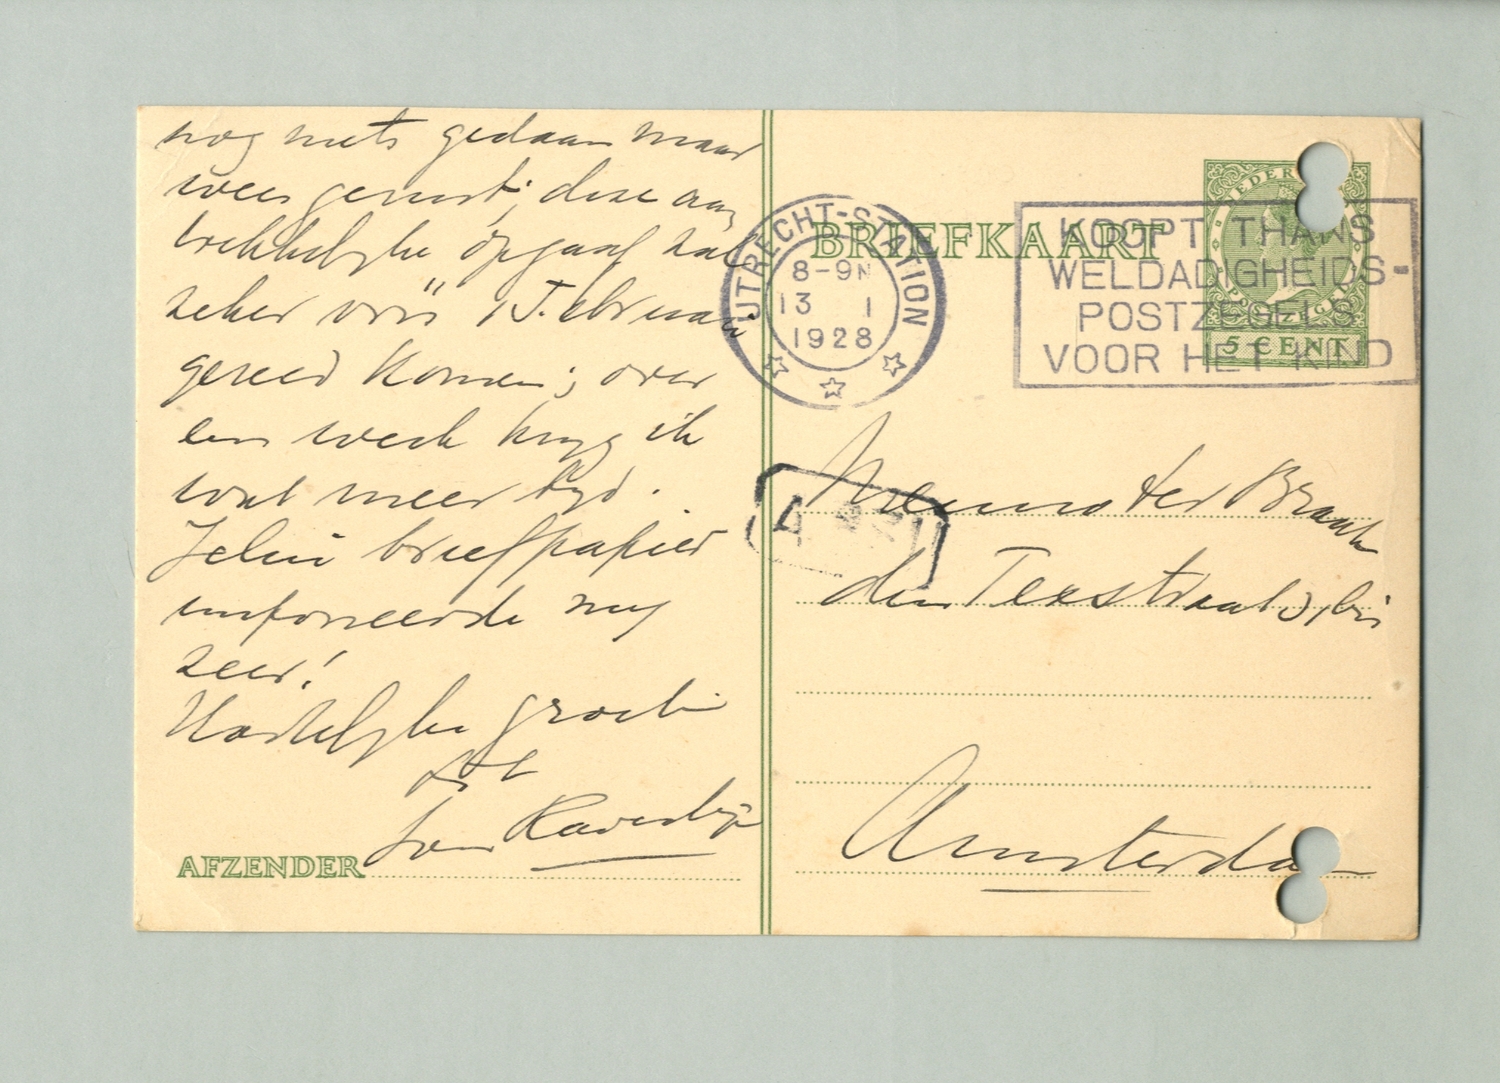 nog niets gedaan maar
wees gerust; deze aan
trekkelijke opgaaf zal
zeker vóór 15 Februari
gereed komen; over
een week krijg ik
wat meer tijd.
Je briefpapier
imponeerde mij
zeer!
Hartelijke groeten
van Ravenswaay
AFZENDER
BRIEFKAART
UTRECHT-STATION
8-9N
13 1
1928
KOOPT THANS
WELDADIGHEIDS-
POSTZEGELS
VOOR HET KIND
NEDERL
POSTZEGEL
5 CENT
Menno ter Braak
den Texstraat 31 bis
Amsterdam